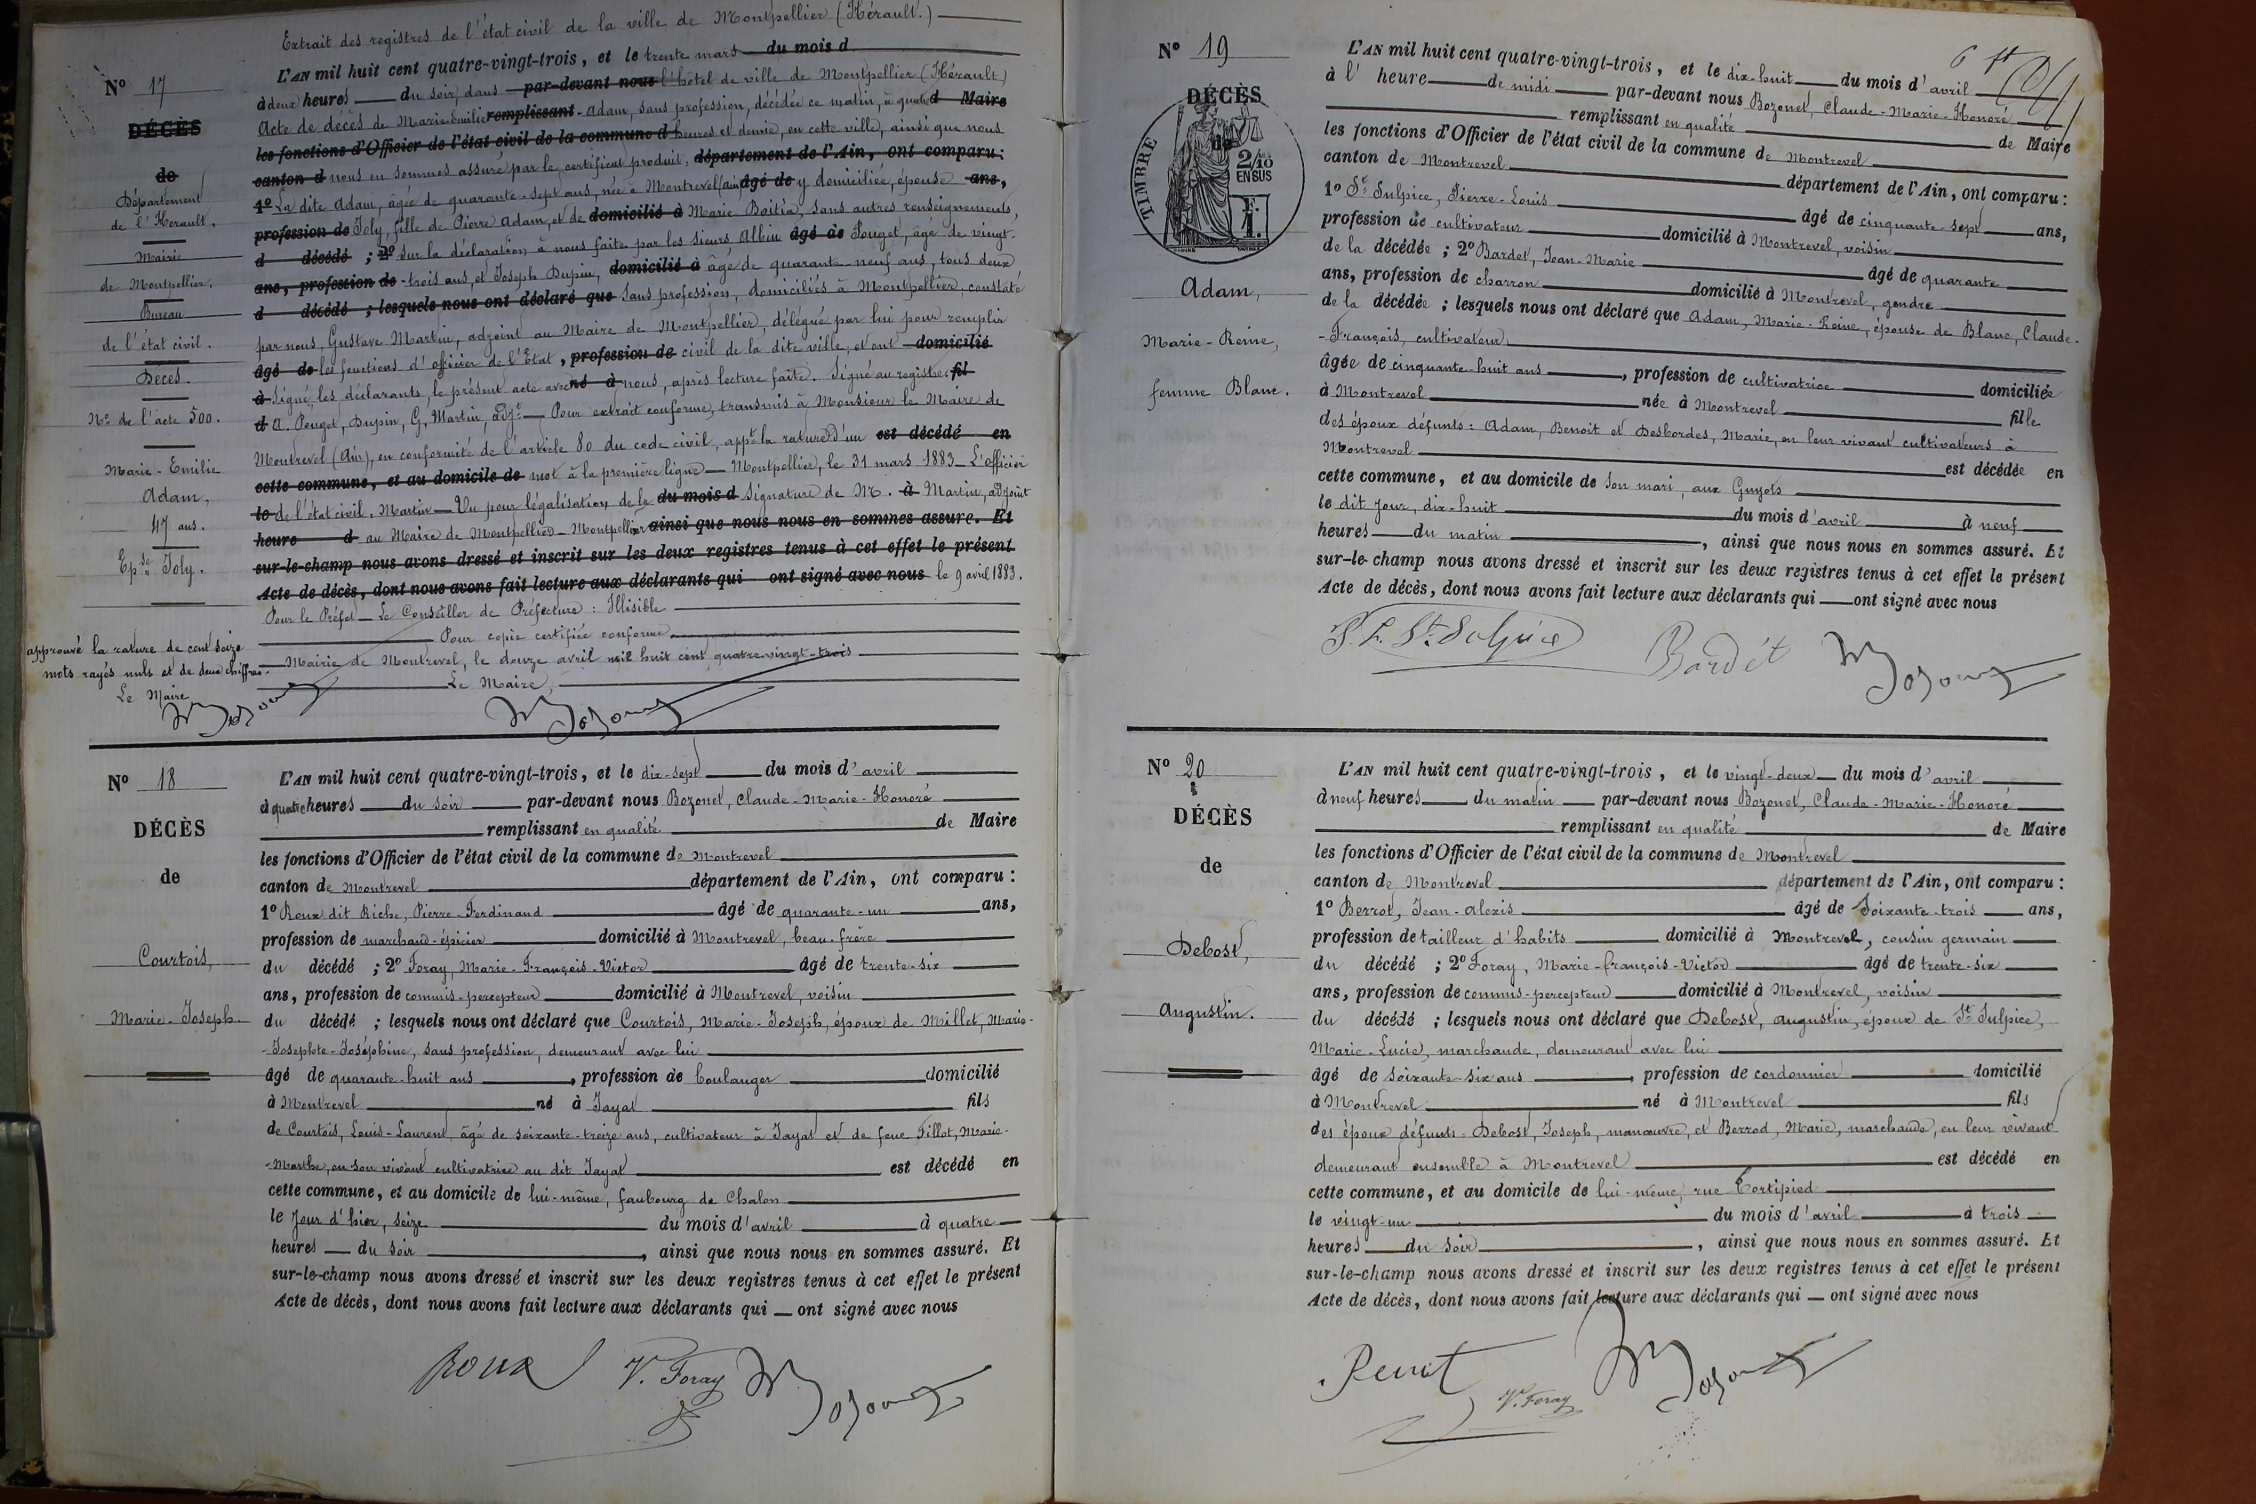 Extrait des registres de l'état civil de la ville de Montpellier (Hérault.)
N° 17
L'AN mil huit cent quatre-vingt-trois, et le trente mars du mois d
à deux heures du soir, dans par-devant nous l'hôtel de ville de Montpellier (Hérault)
Acte de décès de Marie Emilie remplissant Adam, sans profession, décédée ce matin, à quatre d Maire
les fonctions d'Officier de l'état civil de la commune d heures et demie, en cette ville, ainsi que nous
canton d nous en sommes assuré par le certificat produit, département de l'Ain, ont comparu :
1° La dite Adam, âgée de quarante-sept ans, née à Montrevel (ain) âgé de y domiciliée, épouse ans,
profession de Joly, fille de Pierre Adam, et de domicilié à Marie Boitia, sans autres renseignements,
d décédé ; 2° Sur la déclaration à nous faite par les sieurs Albin âgé de Pouget, âgé de vingt-
ans, profession de -trois ans, et Joseph Dupin, domicilié à âgé de quarante-neuf ans, tous deux
d décédé ; lesquels nous ont déclaré que sans profession, domiciliés à Montpellier, constaté
par nous, Gustave Martin, adjoint au Maire de Montpellier, délégué par lui pour remplir
âgé de les fonctions d'officier de l'Etat, profession de civil de la dite ville, et ont domicilié
à signé les déclarants, le présent acte avec né à nous, après lecture faite. Signé au registre : fil
d A. Pouget, Dupin, G. Martin, adjt. Pour extrait conforme, transmis à Monsieur le Maire de
Montrevel (Ain), en conformité de l'article 80 du code civil, appt la rature d'un est décédé en
cette commune, et au domicile de mot à la première ligne Montpellier, le 31 mars 1883 L'officier
le de l'état civil. Martin Vu pour légalisation de la du mois d signature de M. à Martin, adjoint
heure d au Maire de Montpellier Montpellier ainsi que nous nous en sommes assuré. Et
sur-le-champ nous avons dressé et inscrit sur les deux registres tenus à cet effet le présent
Acte de décès, dont nous avons fait lecture aux déclarants qui ont signé avec nous le 9 avril 1883.
Pour le Préfet Le Conseiller de Préfecture : Illisible
Pour copie certifiée conforme
Mairie de Montrevel, le douze avril mil huit cent quatre-vingt-trois
Le Maire,
DÉCÈS
de
Département
de l'Hérault.
Mairie
de Montpellier.
Bureau
de l'état civil.
Décès.
N° de l'acte 500.
Marie-Emilie
Adam,
47 ans.
Epse Joly.
approuvé la rature de cent seize
mots rayés nuls et de deux chiffres.
Le Maire
N° 18
DÉCÈS
de
Courtois,
Marie-Joseph.
L'AN mil huit cent quatre-vingt-trois, et le dix-sept du mois d'avril
à quatre heures du soir par-devant nous Bozonet, Claude-Marie-Honoré
remplissant en qualité de Maire
les fonctions d'Officier de l'état civil de la commune de Montrevel
canton de Montrevel département de l'Ain, ont comparu :
1° Roux dit Riche, Pierre-Ferdinand âgé de quarante-un ans,
profession de marchand-épicier domicilié à Montrevel, beau-frère
du décédé ; 2° Foray, Marie-François-Victor âgé de trente-six
ans, profession de commis-percepteur domicilié à Montrevel, voisin
du décédé ; lesquels nous ont déclaré que Courtois, Marie-Joseph, époux de Millet, Marie-
-Josephte-Joséphine, sans profession, demeurant avec lui
âgé de quarante-huit ans, profession de boulanger domicilié
à Montrevel né à Jayat fils
de Courtois, Louis-Laurent, âgé de soixante-treize ans, cultivateur à Jayat et de feue Pillot, Marie-
-Marthe, en son vivant cultivatrice au dit Jayat est décédé en
cette commune, et au domicile de lui-même, faubourg de Chalon
le jour d'hier, seize du mois d'avril à quatre
heures du soir, ainsi que nous nous en sommes assuré. Et
sur-le-champ nous avons dressé et inscrit sur les deux registres tenus à cet effet le présent
Acte de décès, dont nous avons fait lecture aux déclarants qui ont signé avec nous
Roux V. Foray Bozonet
N° 19
DÉCÈS
de
TIMBRE
2/10
EN SUS
Adam,
Marie-Reine,
femme Blanc.
L'AN mil huit cent quatre-vingt-trois, et le dix-huit du mois d'avril
à l' heure de midi par-devant nous Bozonet, Claude-Marie-Honoré
remplissant en qualité de Maire
les fonctions d'Officier de l'état civil de la commune de Montrevel
canton de Montrevel département de l'Ain, ont comparu :
1° St Sulpice, Pierre-Louis âgé de cinquante-sept ans,
profession de cultivateur domicilié à Montrevel, voisin
de la décédée ; 2° Bardet, Jean-Marie âgé de quarante
ans, profession de charron domicilié à Montrevel, gendre
de la décédée ; lesquels nous ont déclaré que Adam, Marie-Reine, épouse de Blanc, Claude-
-François, cultivateur
âgée de cinquante-huit ans, profession de cultivatrice domiciliée
à Montrevel née à Montrevel fille
des époux défunts : Adam, Benoit et Desbordes, Marie, en leur vivant cultivateurs à
Montrevel est décédée en
cette commune, et au domicile de son mari, aux Guyots
le dit jour, dix-huit du mois d'avril à neuf
heures du matin, ainsi que nous nous en sommes assuré. Et
sur-le-champ nous avons dressé et inscrit sur les deux registres tenus à cet effet le présent
Acte de décès, dont nous avons fait lecture aux déclarants qui ont signé avec nous
P. L. St. Sulpice Bardét Bozonet
N° 20
DÉCÈS
de
Debost,
Augustin.
L'AN mil huit cent quatre-vingt-trois, et le vingt-deux du mois d'avril
à neuf heures du matin par-devant nous Bozonet, Claude-Marie-Honoré
remplissant en qualité de Maire
les fonctions d'Officier de l'état civil de la commune de Montrevel
canton de Montrevel département de l'Ain, ont comparu :
1° Berrot, Jean-Alexis âgé de soixante-trois ans,
profession de tailleur d'habits domicilié à Montrevel, cousin germain
du décédé ; 2° Foray, Marie-François-Victor âgé de trente-six
ans, profession de commis-percepteur domicilié à Montrevel, voisin
du décédé ; lesquels nous ont déclaré que Debost, Augustin, époux de St Sulpice,
Marie-Lucie, marchande, demeurant avec lui
âgé de soixante-six ans, profession de cordonnier domicilié
à Montrevel né à Montrevel fils
des époux défunts Debost, Joseph, manœuvre, et Berrod, Marie, marchande, en leur vivant
demeurant ensemble à Montrevel est décédé en
cette commune, et au domicile de lui-même, rue Tortipied
le vingt-un du mois d'avril à trois
heures du soir, ainsi que nous nous en sommes assuré. Et
sur-le-champ nous avons dressé et inscrit sur les deux registres tenus à cet effet le présent
Acte de décès, dont nous avons fait lecture aux déclarants qui ont signé avec nous
V. Foray Bozonet